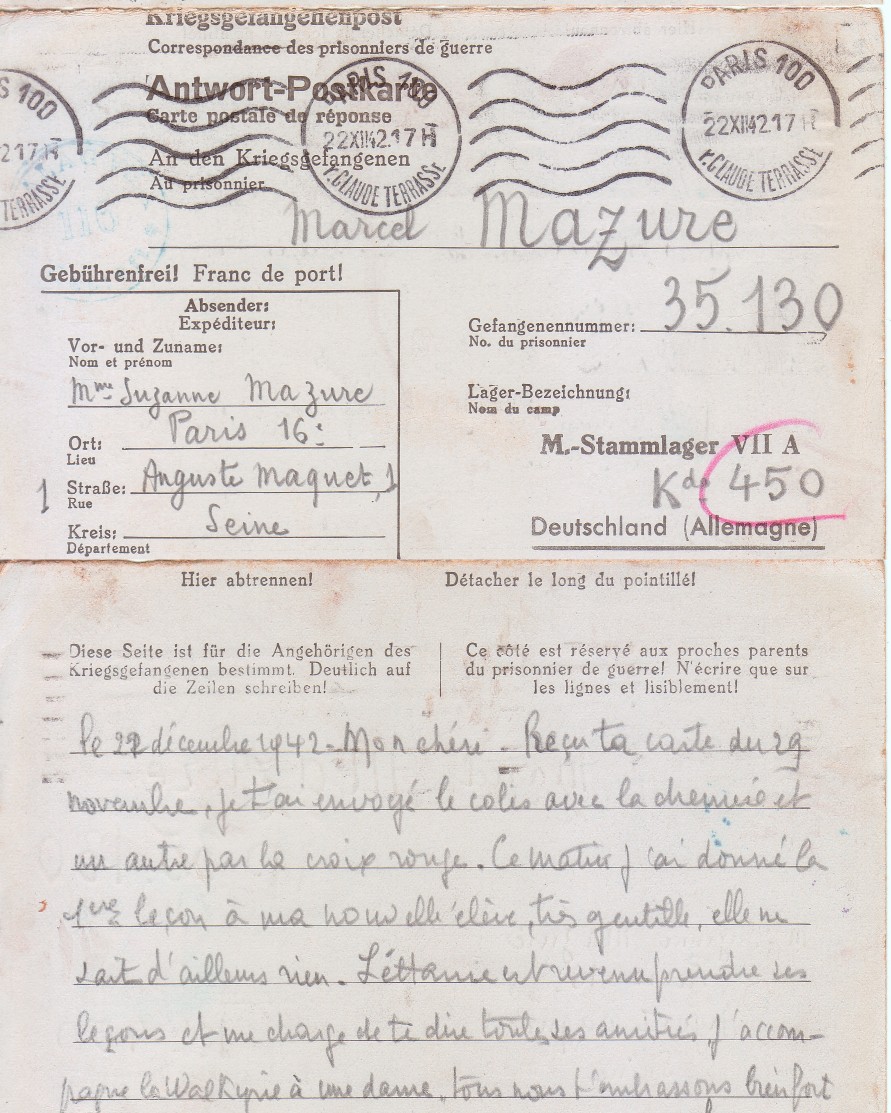 Kriegsgefangenenpost
Correspondance des prisonniers de guerre
Antwort-Postkarte
Carte postale de réponse
An den Kriegsgefangenen
Au prisonnier
PARIS 100
22XII42.17H
R.CLAUDE TERRASSE
PARIS 100
22XII42.17H
R.CLAUDE TERRASSE
S 100
217H
TERRASSE
Marcel Mazure
Gebührenfrei! Franc de port!
Absender:
Expéditeur:
Vor- und Zuname:
Nom et prénom
Mme Suzanne Mazure
Ort: Paris 16e
Lieu
1 Straße: Auguste Maquet, 1
Rue
Kreis: Seine
Département
Gefangenennummer: 35.130
No. du prisonnier
Lager-Bezeichnung:
Nom du camp
M.-Stammlager VII A
Kdo 450
Deutschland (Allemagne)
Hier abtrennen! Détacher le long du pointillé!
Diese Seite ist für die Angehörigen des
Kriegsgefangenen bestimmt. Deutlich auf
die Zeilen schreiben!
Ce côté est réservé aux proches parents
du prisonnier de guerre! N'écrire que sur
les lignes et lisiblement!
le 22 décembre 1942 - Mon chéri - Reçu ta carte du 29
novembre, je t'ai envoyé le colis avec la chemise et
un autre par la croix rouge. Ce matin j'ai donné la
1ère leçon à ma nouvelle élève, très gentille, elle ne
sait d'ailleurs rien. est revenu prendre ses
leçons et me charge de te dire toutes ses amitiés, j'accom-
pagne la Walkyrie à une dame, tous nous t'embrassons bien fort